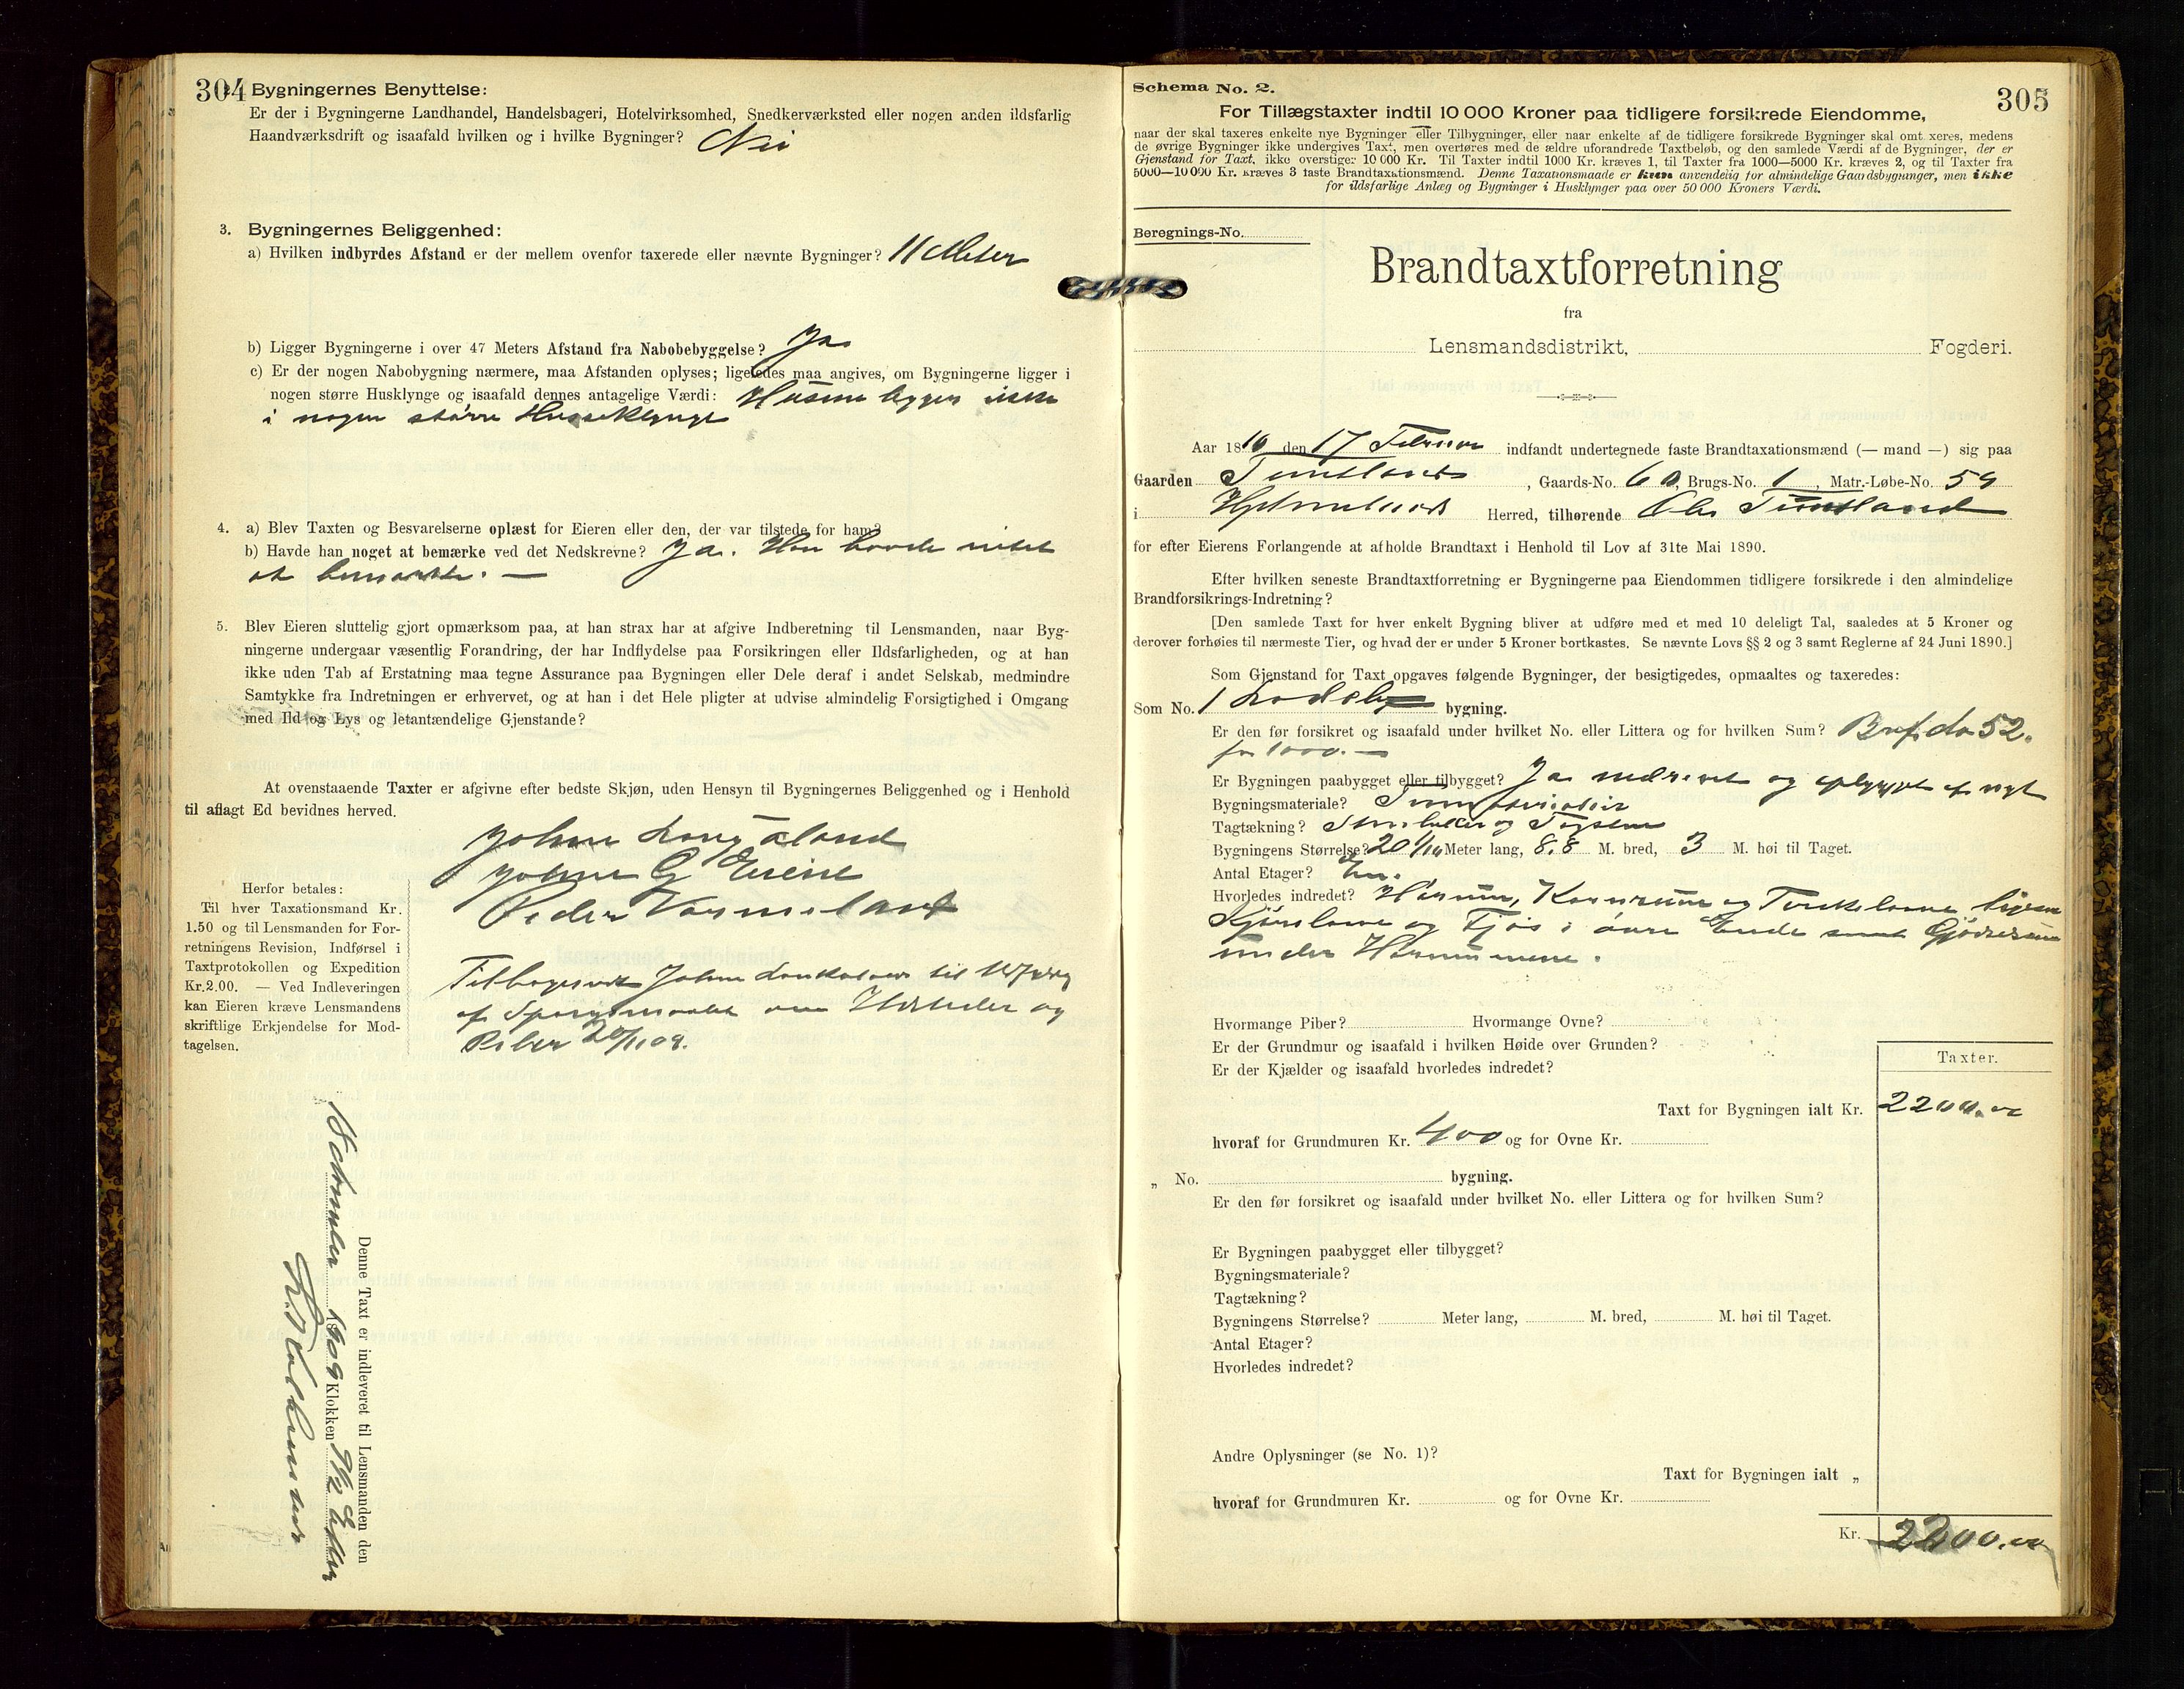 304
Bygningernes Benyttelse:
Er der i Bygningerne Landhandel, Handelsbageri, Hotelvirksomhed, Snedkerværksted eller nogen anden ildsfarlig
Haandværksdrift og isaafald hvilken og i hvilke Bygninger? Nei
3. Bygningernes Beliggenhed:
a) Hvilken indbyrdes Afstand er der mellem ovenfor taxerede eller nævnte Bygninger? 11 Meter
b) Ligger Bygningerne i over 47 Meters Afstand fra Nabobebyggelse? Ja
c) Er der nogen Nabobygning nærmere, maa Afstanden oplyses; ligeledes maa angives, om Bygningerne ligger i
nogen større Husklynge og isaafald dennes antagelige Værdi: Husene ligger ikke
i nogen større Husklynge
4. a) Blev Taxten og Besvarelserne oplæst for Eieren eller den, der var tilstede for ham?
b) Havde han noget at bemærke ved det Nedskrevne? Ja. Han havde intet
at bemærke. —
5. Blev Eieren sluttelig gjort opmærksom paa, at han strax har at afgive Indberetning til Lensmanden, naar Byg-
ningerne undergaar væsentlig Forandring, der har Indflydelse paa Forsikringen eller Ildsfarligheden, og at han
ikke uden Tab af Erstatning maa tegne Assurance paa Bygningen eller Dele deraf i andet Selskab, medmindre
Samtykke fra Indretningen er erhvervet, og at han i det Hele pligter at udvise almindelig Forsigtighed i Omgang
med Ild og Lys og letantændelige Gjenstande?
At ovenstaaende Taxter er afgivne efter bedste Skjøn, uden Hensyn til Bygningernes Beliggenhed og i Henhold
til aflagt Ed bevidnes herved.
Johne
Johne G
Peder
Herfor betales:
Til hver Taxationsmand Kr.
1.50 og til Lensmanden for For-
retningens Revision, Indførsel i
Taxtprotokollen og Expedition
Kr.2.00. — Ved Indleveringen
kan Eieren kræve Lensmandens
skriftlige Erkjendelse for Mod-
tagelsen.
Johne til
af Spørgsmaalet om Ildsteder og
Piber
Denne Taxt er indleveret til Lensmanden den
1909 Klokken
305
Schema No. 2.
For Tillægstaxter indtil 10 000 Kroner paa tidligere forsikrede Eiendomme,
naar der skal taxeres enkelte nye Bygninger eller Tilbygninger, eller naar enkelte af de tidligere forsikrede Bygninger skal omtaxeres, medens
de øvrige Bygninger ikke undergives Taxt, men overføres med de ældre uforandrede Taxtbeløb, og den samlede Værdi af de Bygninger, der er
Gjenstand for Taxt, ikke overstiger 10 000 Kr. Til Taxter indtil 1000 Kr. kræves 1, til Taxter fra 1000—5000 Kr. kræves 2, og til Taxter fra
5000—10 000 Kr. kræves 3 faste Brandtaxationsmænd. Denne Taxationsmaade er kun anvendelig for almindelige Gaardsbygninger, men ikke
for ildsfarlige Anlæg og Bygninger i Husklynger paa over 50 000 Kroners Værdi.
Beregnings-No.
Brandtaxtforretning
fra
Lensmandsdistrikt, Fogderi.
Aar 1810 den 17 Februar indfandt undertegnede faste Brandtaxationsmænd (— mand —) sig paa
Gaarden , Gaards-No. 60, Brugs-No. 1, Matr.-Løbe-No. 59
i Hjelmelands Herred, tilhørende Ole
for efter Eierens Forlangende at afholde Brandtaxt i Henhold til Lov af 31te Mai 1890.
Efter hvilken seneste Brandtaxtforretning er Bygningerne paa Eiendommen tidligere forsikrede i den almindelige
Brandforsikrings-Indretning?
[Den samlede Taxt for hver enkelt Bygning bliver at udføre med et med 10 deleligt Tal, saaledes at 5 Kroner og
derover forhøies til nærmeste Tier, og hvad der er under 5 Kroner bortkastes. Se nævnte Lovs §§ 2 og 3 samt Reglerne af 24 Juni 1890.]
Som Gjenstand for Taxt opgaves følgende Bygninger, der besigtigedes, opmaaltes og taxeredes:
Som No. 1 bygning.
Er den før forsikret og isaafald under hvilket No. eller Littera og for hvilken Sum? 52.
for 1000. —
Er Bygningen paabygget eller tilbygget? Ja nedrevet og opbygget af nyt
Bygningsmateriale?
Tagtækning? og Tagsten
Bygningens Størrelse? Meter lang, 8.8 M. bred, 3 M. høi til Taget.
Antal Etager? En.
Hvorledes indredet? Hørum, Kornrum og
og Fjøs i øvre Ende samt
under Hørummene.
Hvormange Piber? Hvormange Ovne?
Er der Grundmur og isaafald i hvilken Høide over Grunden?
Er der Kjælder og isaafald hvorledes indredet?
Taxter.
Taxt for Bygningen ialt Kr. 2200.00
hvoraf for Grundmuren Kr. 400 og for Ovne Kr.
„ No. bygning.
Er den før forsikret og isaafald under hvilket No. eller Littera og for hvilken Sum?
Er Bygningen paabygget eller tilbygget?
Bygningsmateriale?
Tagtækning?
Bygningens Størrelse? Meter lang, M. bred, M. høi til Taget.
Antal Etager?
Hvorledes indredet?
Andre Oplysninger (se No. 1)?
Taxt for Bygningen ialt „
hvoraf for Grundmuren Kr. og for Ovne Kr.
Kr. 2200.00